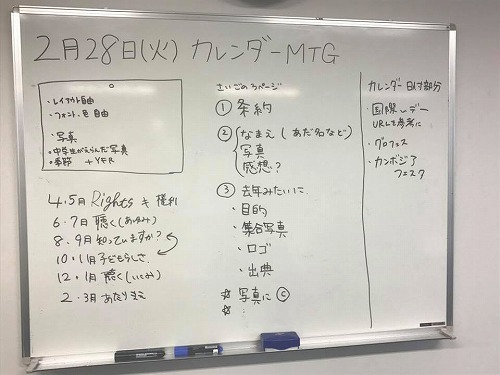 2月28日(火) カレンダーMTG
・レイアウト自由
・フォント、色 自由
・写真
・中学生がえらんだ写真
・季節 + YFR
4.5月 Rights 権利
6.7月 聴く(あゆみ)
8.9月 知っていますか?
10.11月 子どもらしさ
12.1月 聴く
2.3月 あたりまえ
さいごの3ページ
① 条約
② なまえ(あだ名など)
写真
感想?
③ 去年みたいに
・目的
・集合写真
・ロゴ
・出典
☆ 写真に ©
☆
カレンダー 日付部分
・国際デー
URLを参考に
・グロフェス
・カンボジア
フェスタ